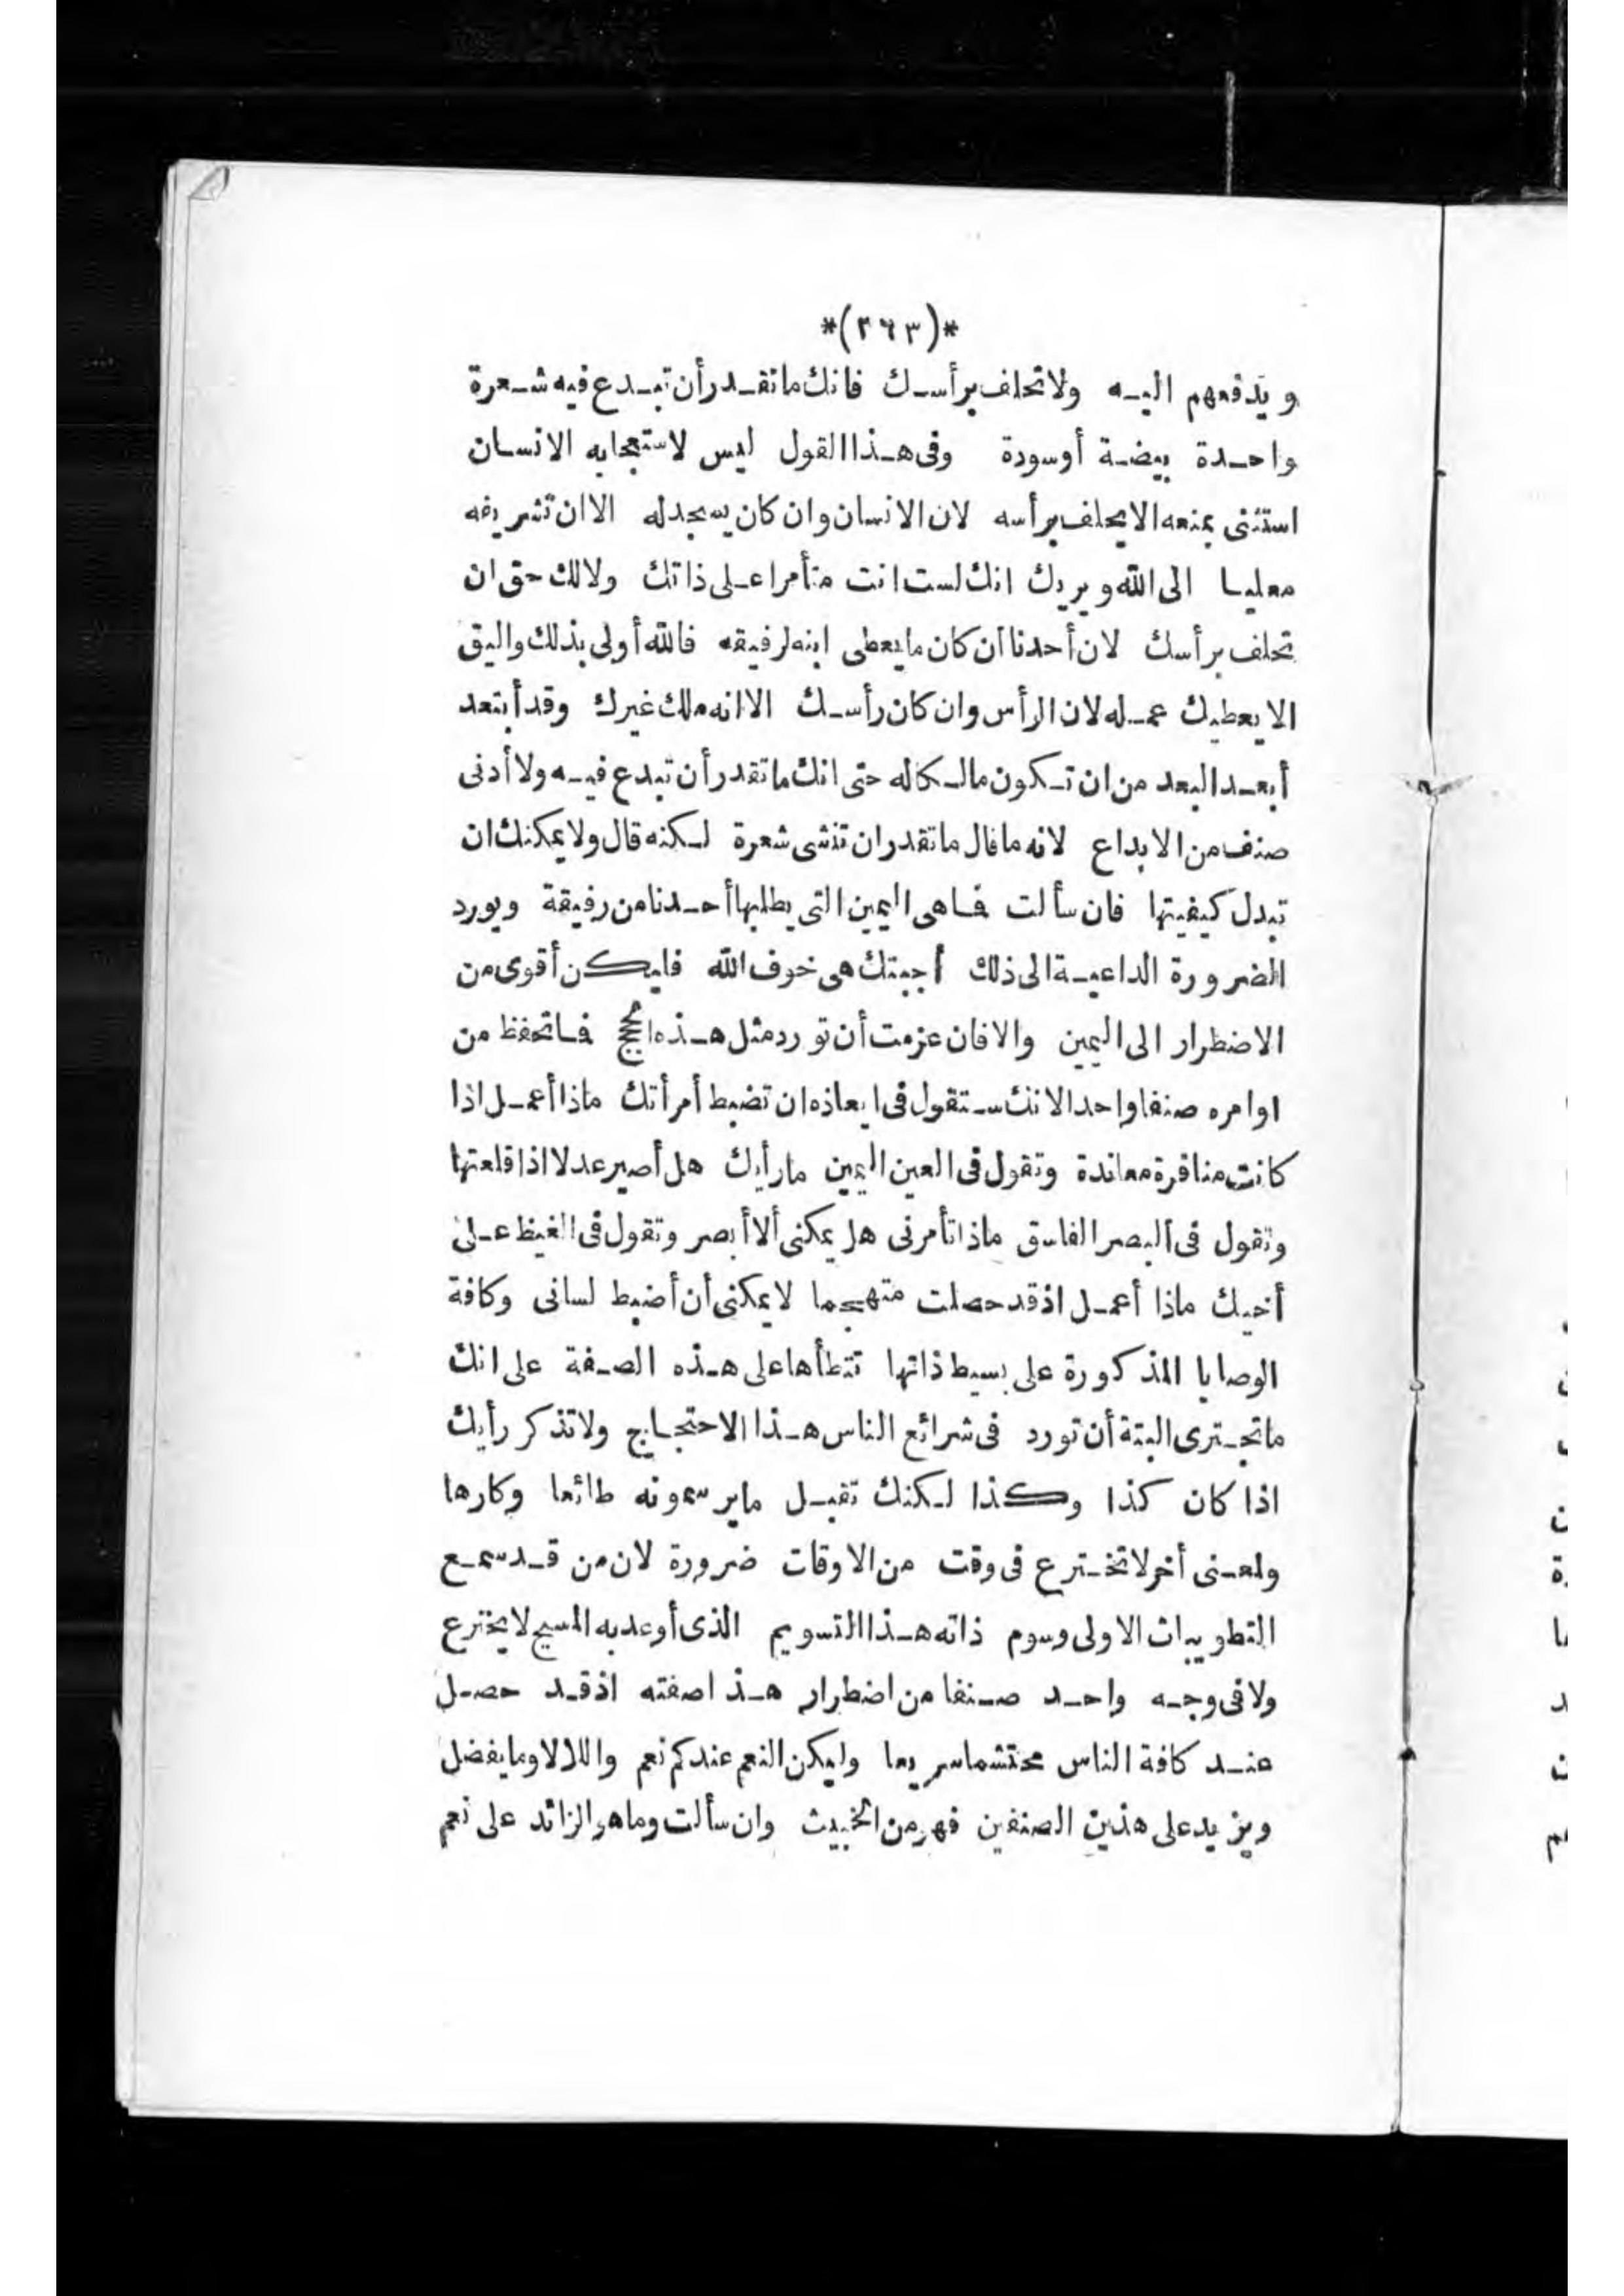 *(٢٦٣)*
ويدفعهم اليه ولا تحلف برأسك فانك ما تقدر أن تبدع فيه شعرة
واحدة بيضة أوسودة وفى هذا القول ليس لاستعجابه الانسان
استثنى بمنعه الايحلف برأسه لان الانسان وان كان يسجد له الا ان تشريفه
معليا الى الله ويريك انك لست انت متأمرا على ذاتك ولالك حق ان
تحلف برأسك لان أحدنا ان كان ما يعطى ابنه لرفيقه فالله أولى بذلك واليق
الا يعطيك عمله لان الرأس وان كان رأسك الا انه ملك غيرك وقد أبتعد
أبعد البعد من ان تكون مالكا له حتى انك ما تقدر أن تبدع فيه ولا أدنى
صنف من الابداع لانه ما قال ما تقدر ان تنشى شعرة لكنه قال ولا يمكنك ان
تبدل كيفيتها فان سألت فما هى اليمين التى يطلبها أحدنا من رفيقة ويورد
الضرورة الداعية الى ذلك أجبتك هى خوف الله فليكن أقوى من
الاضطرار الى اليمين والا فان عزمت أن تورد مثل هذه الحجج فما تحفظ من
اوامره صنفا واحدا لانك ستقول فى ايعاذه ان تضبط أمرأتك ماذا أعمل اذا
كانت منافرة معاندة وتقول فى العين اليمين ما رأيك هل أصير عدلا اذا قلعتها
وتقول فى البصر الفاسق ماذا تأمرنى هل يمكنى ألا أبصر وتقول فى الغيظ على
أخيك ماذا أعمل اذ قد حصلت متهجما لا يمكنى أن أضبط لسانى وكافة
الوصايا المذكورة على بسيط ذاتها تتطأها على هذه الصفة على انك
ما تجترى البتة أن تورد فى شرائع الناس هذا الاحتجاج ولا تذكر رأيك
اذا كان كذا وكذا لكنك تقبل ما يرسمونه طائعا وكارها
ولمعنى أخر لا تخترع فى وقت من الاوقات ضرورة لان من قد سمع
التطويبات الاولى وسوم ذاته هذا التسويم الذى أوعد به المسيح لا يخترع
ولا فى وجه واحد صنفا من اضطرار هذا صفته اذ قد حصل
عند كافة الناس محتشما سريعا وليكن النعم عندكم نعم واللا لا وما يفضل
ويزيد على هذين الصنفين فهو من الخبيث وان سألت وما هو الزائد على نعم